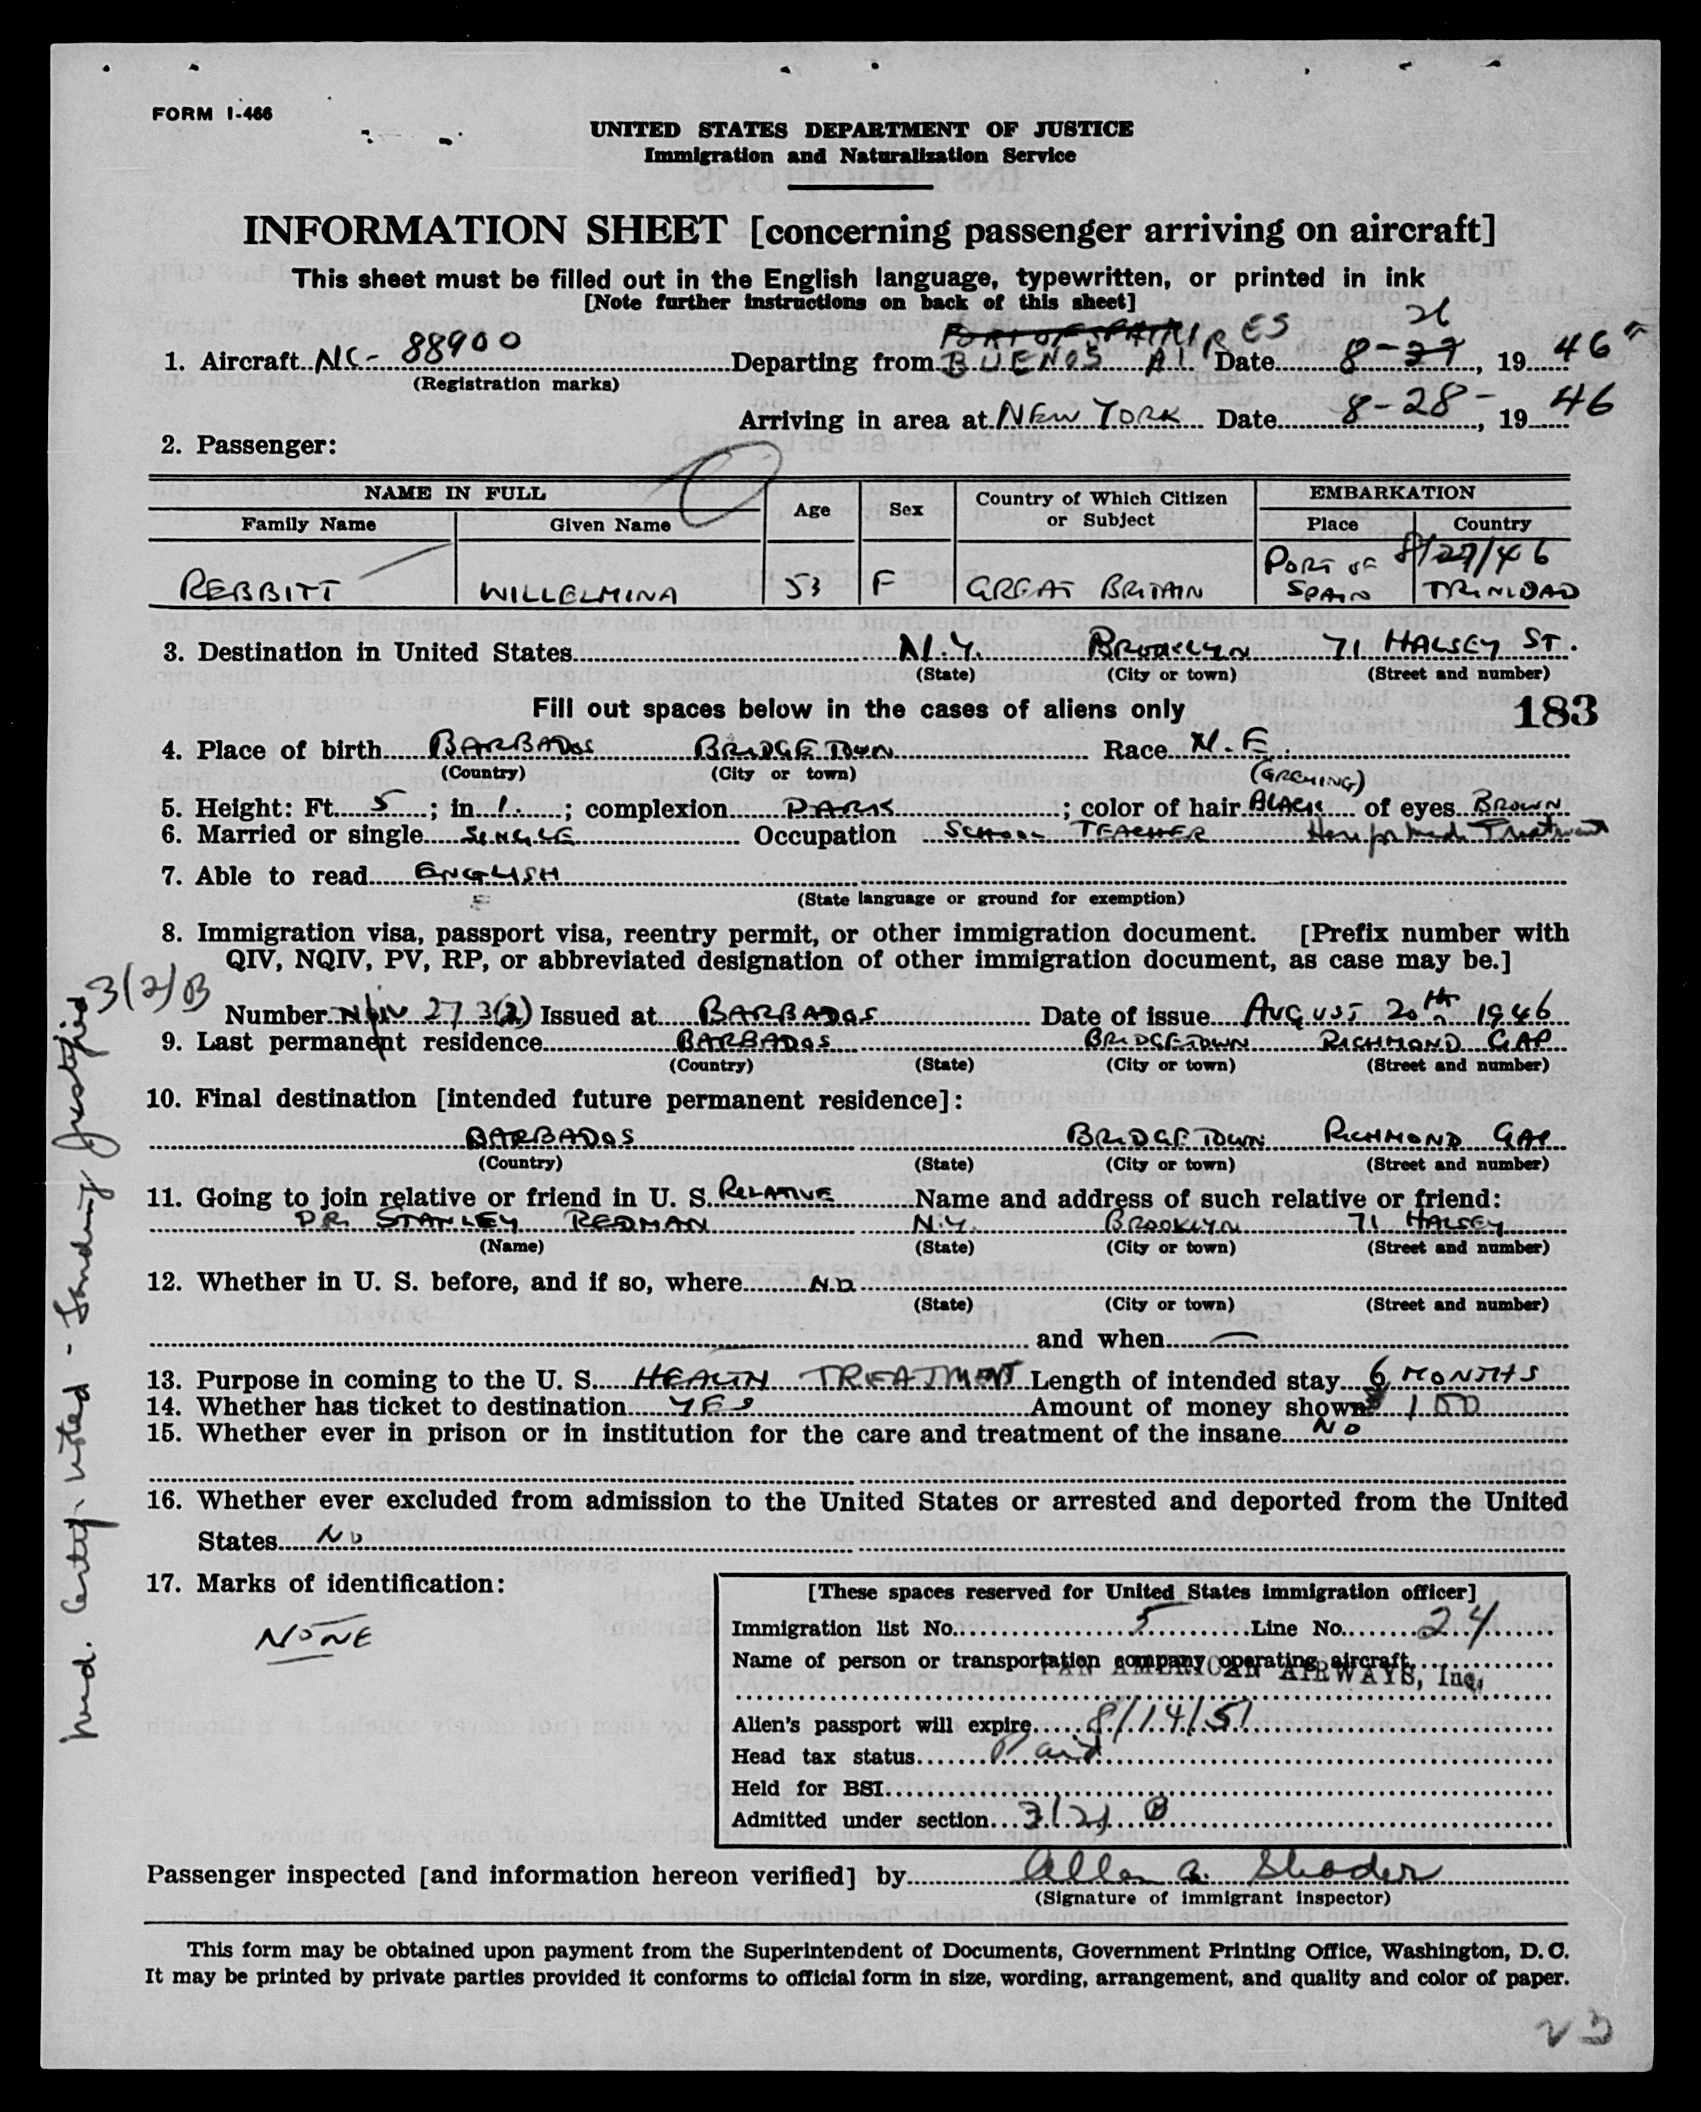 FORM I-466
UNITED STATES DEPARTMENT OF JUSTICE
Immigration and Naturalization Service
INFORMATION SHEET [concerning passenger arriving on aircraft]
This sheet must be filled out in the English language, typewritten, or printed in ink
[Note further instructions on back of this sheet]
PORT OF SPAIN 26
1. Aircraft NC- 88900 Departing from BUENOS AIRES Date 8-27, 1946
(Registration marks)
Arriving in area at NEW YORK Date 8-28-, 1946
2. Passenger:
NAME IN FULL Age Sex Country of Which Citizen or Subject EMBARKATION
Family Name Given Name Place Country
8/27/46
REBBITT WILLELMINA 53 F GREAT BRITAIN PORT OF SPAIN TRINIDAD
3. Destination in United States N.Y. BROOKLYN 71 HALSEY ST.
(State) (City or town) (Street and number)
Fill out spaces below in the cases of aliens only 183
4. Place of birth BARBADOS BRIDGETOWN Race N.E.
(Country) (City or town)
(GREYING)
5. Height: Ft. 5; in. 1; complexion DARK; color of hair BLACK of eyes BROWN
6. Married or single SINGLE Occupation SCHOOL TEACHER Here for Med. Treatment
7. Able to read ENGLISH
(State language or ground for exemption)
8. Immigration visa, passport visa, reentry permit, or other immigration document. [Prefix number with
QIV, NQIV, PV, RP, or abbreviated designation of other immigration document, as case may be.]
3(2)B
Number 27 3(2) Issued at BARBADOS Date of issue AUGUST 20th 1946
9. Last permanent residence BARBADOS BRIDGETOWN RICHMOND GAP
(Country) (State) (City or town) (Street and number)
10. Final destination [intended future permanent residence]:
BARBADOS BRIDGETOWN RICHMOND GAP
(Country) (State) (City or town) (Street and number)
11. Going to join relative or friend in U. S. RELATIVE Name and address of such relative or friend:
DR. STANLEY REDMAN N.Y. BROOKLYN 71 HALSEY
(Name) (State) (City or town) (Street and number)
12. Whether in U. S. before, and if so, where NO
(State) (City or town) (Street and number)
and when —
13. Purpose in coming to the U. S. HEALTH TREATMENT Length of intended stay 6 MONTHS
14. Whether has ticket to destination YES Amount of money shown $ 100
15. Whether ever in prison or in institution for the care and treatment of the insane NO
16. Whether ever excluded from admission to the United States or arrested and deported from the United
States NO
17. Marks of identification:
NONE
[These spaces reserved for United States immigration officer]
Immigration list No. 5 Line No. 24
Name of person or transportation company operating aircraft
PAN AMERICAN AIRWAYS, Inc.
Alien's passport will expire 8/14/51
Head tax status Paid
Held for BSI
Admitted under section 3(2) B
Passenger inspected [and information hereon verified] by Allen A. Shader
(Signature of immigrant inspector)
This form may be obtained upon payment from the Superintendent of Documents, Government Printing Office, Washington, D. C.
It may be printed by private parties provided it conforms to official form in size, wording, arrangement, and quality and color of paper.
Med. Certif. noted - Landing Justified